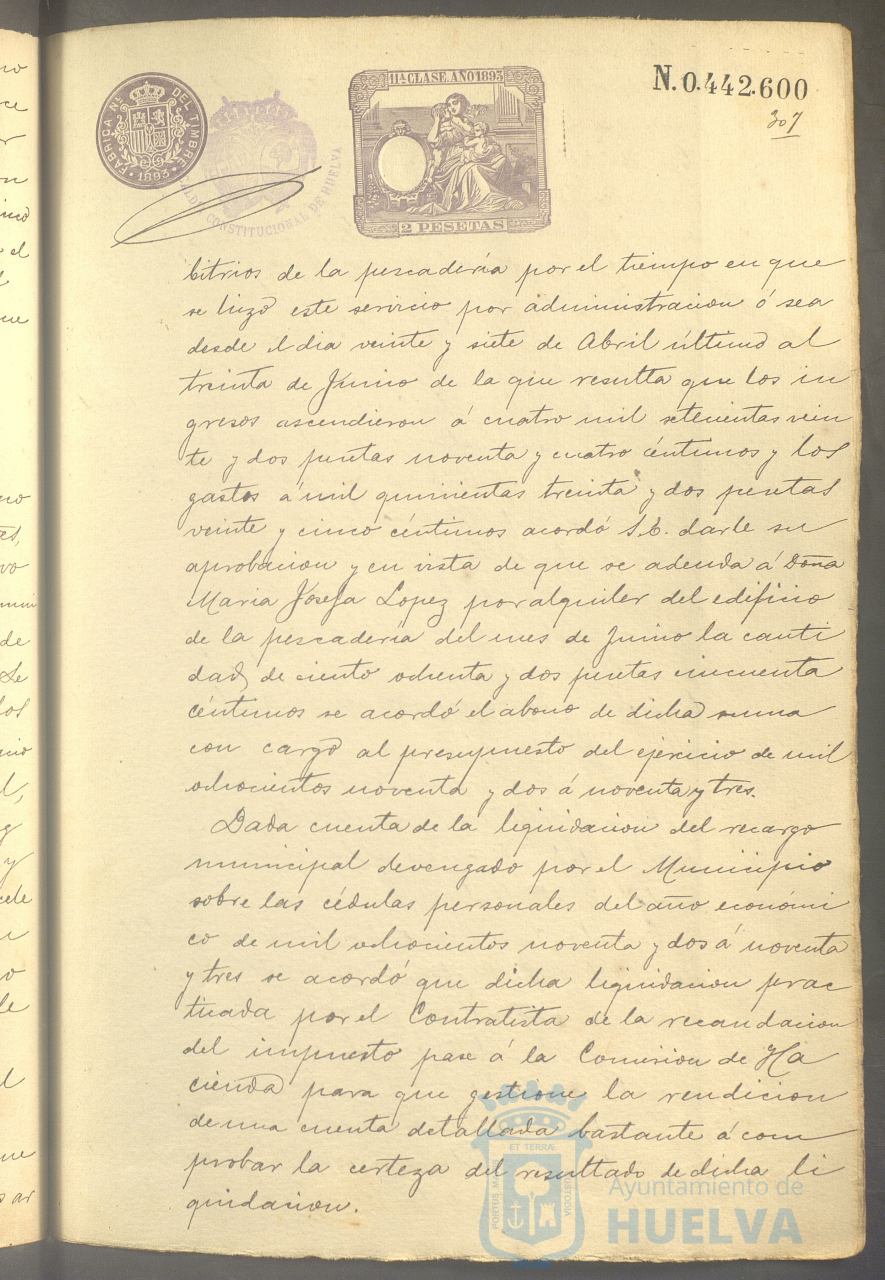 FABRICA NAL DEL TIMBRE
1893
CONSTITUCIONAL DE HUELVA
11ª CLASE. AÑO 1893
2 PESETAS
N.0.442.600
307
bitrios de la pescadería por el tiempo en que
se hizo este servicio por administracion ó sea
desde el dia veinte y siete de Abril último al
treinta de Junio de la que resulta que los in
gresos ascendieron á cuatro mil setecientas vein
te y dos pesetas noventa y cuatro céntimos y los
gastos á mil quinientas treinta y dos pesetas
veinte y cinco céntimos acordó S.E. darle su
aprobacion y en vista de que se adeuda á Doña
Maria Josefa Lopez por alquiler del edificio
de la pescadería del mes de Junio la canti
dad de ciento ochenta y dos pesetas cincuenta
céntimos se acordó el abono de dicha suma
con cargo al presupuesto del ejercicio de mil
ochocientos noventa y dos á noventa y tres.
Dada cuenta de la liquidacion del recargo
municipal devengado por el Municipio
sobre las cédulas personales del año económi
co de mil ochocientos noventa y dos á noventa
y tres se acordó que dicha liquidacion prac
ticada por el Contratista de la recaudacion
del impuesto pase á la Comision de Ha
cienda para que gestione la rendicion
de una cuenta detallada bastante á com
probar la certeza del resultado de dicha li
quidacion.
PORTUS MARIS ET TERRÆ CUSTODIA
Ayuntamiento de
HUELVA